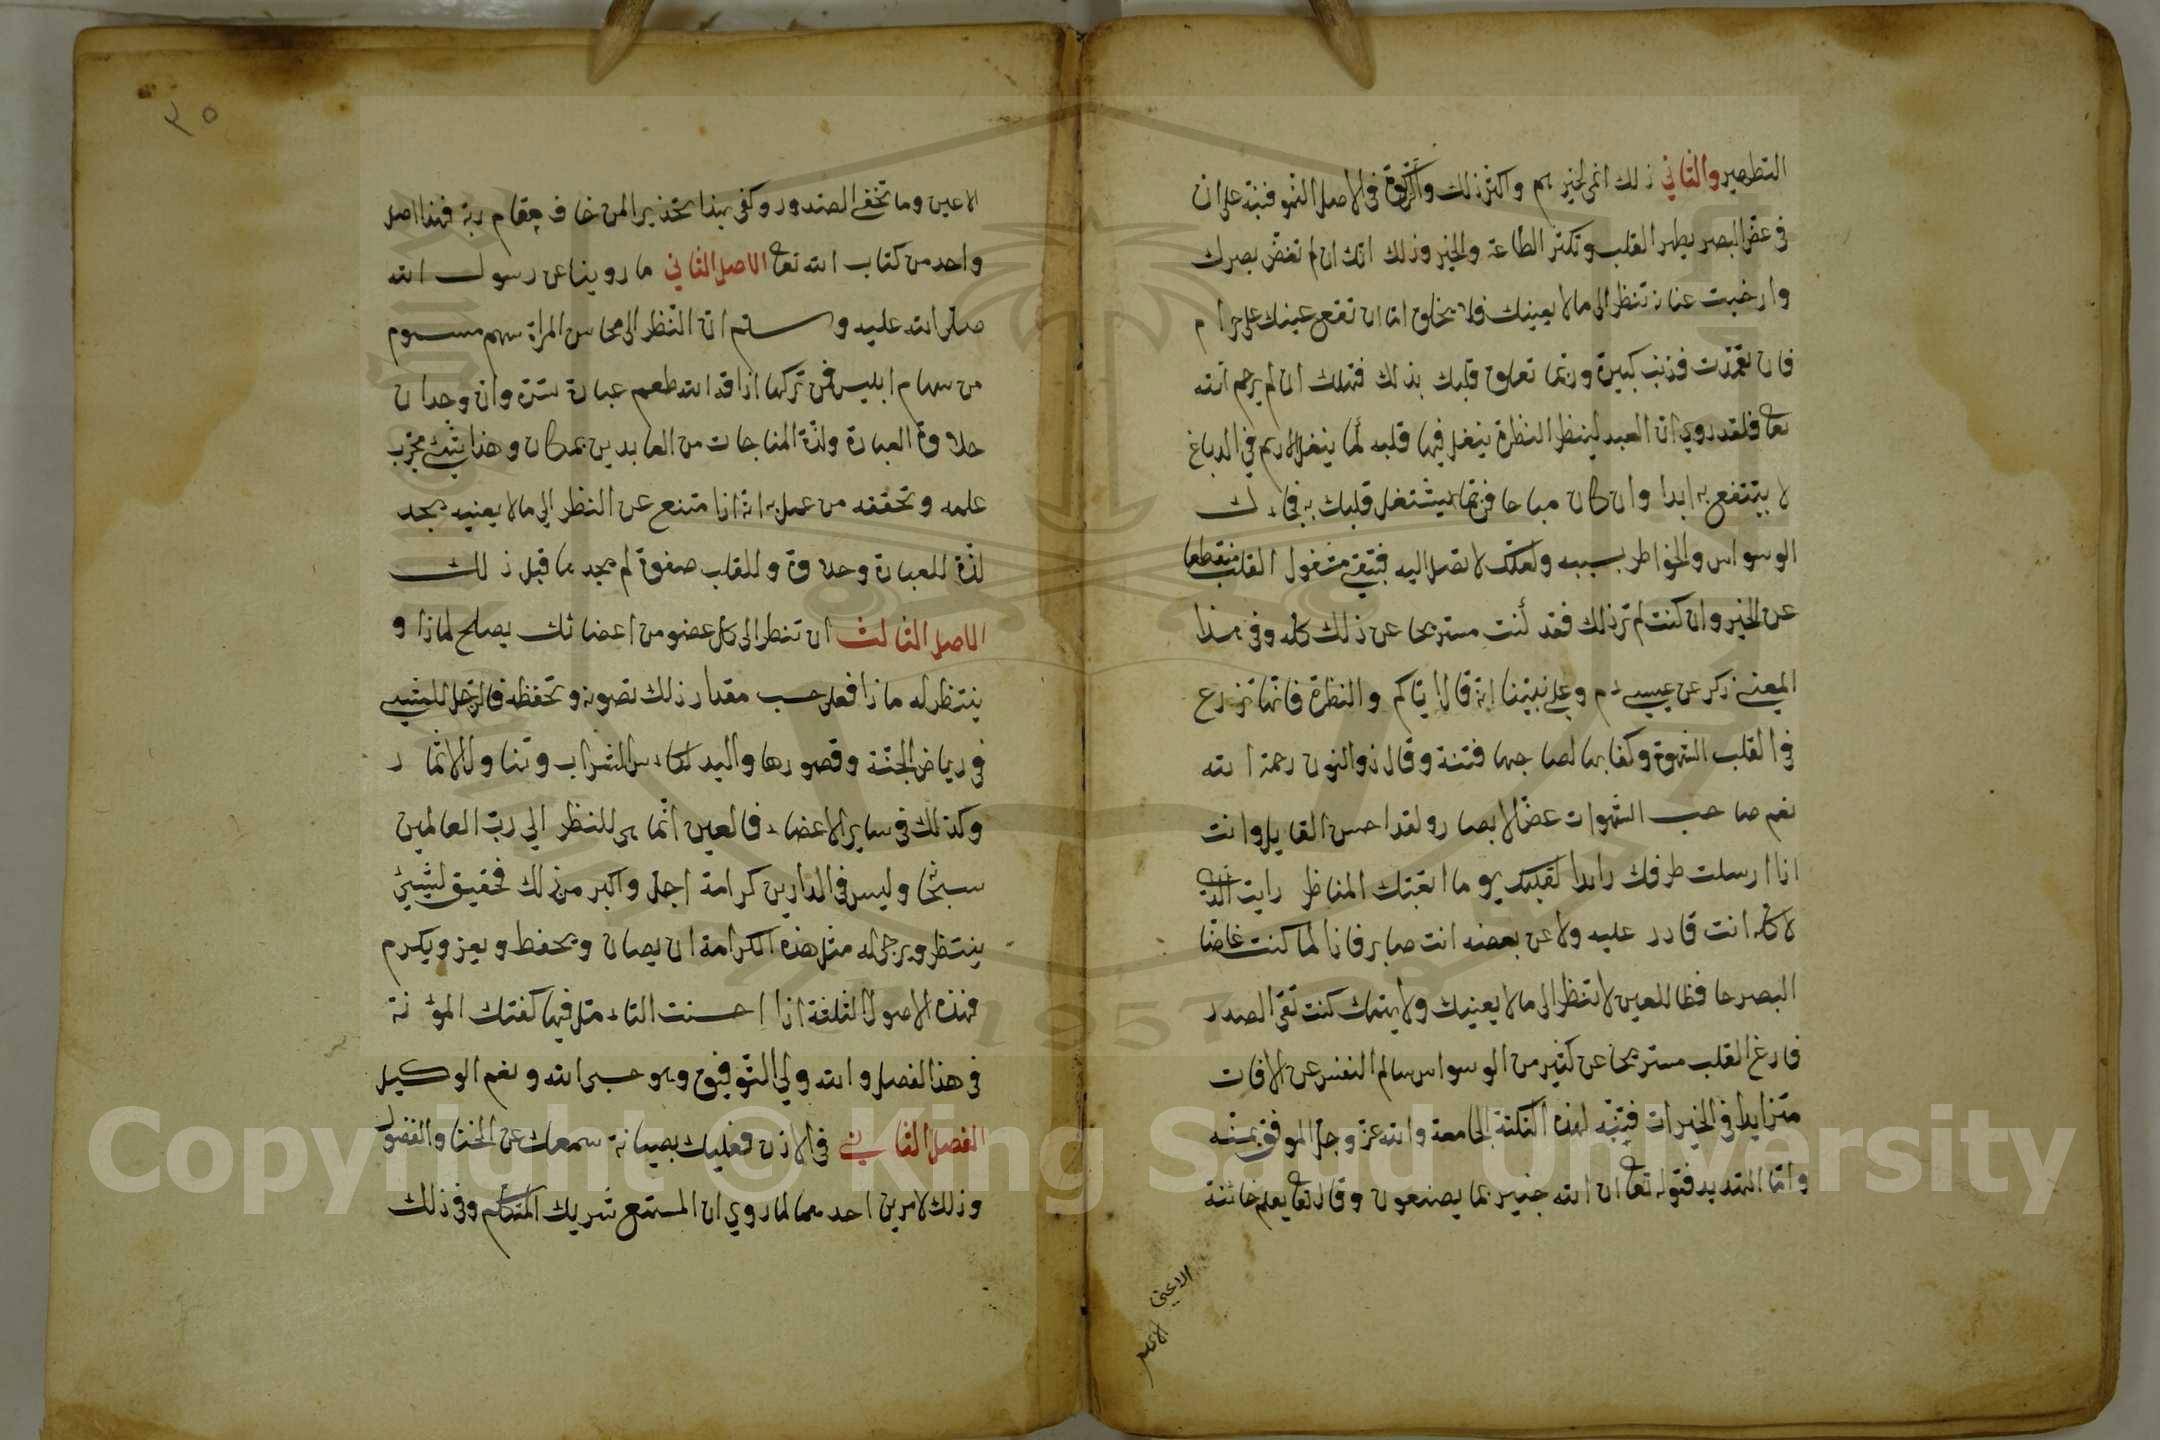 التطهير والثاني ذلك انمى لخيرهم واكثر ذلك والزكوة في الاصل النمو فنبّه على ان
في غض البصر يطهر القلب وتكثر الطاعة والخير وذلك انك ان لم تغضّ بصرك
وارخيت عنانه تنظر الى ما لا يعنيك فلا يخلو اما ان تقع عينك على حرام
فان تعمّدت فذنب كبيرة وربّما تعلق قلبك بذلك فتهلك ان لم يرحم الله
تعالى فلقد روي ان العبد لينظر النظرة ينغل فيها قلبه كما ينغل الاديم في الدباغ
لا ينتفع به ابدا وان كان مباحا فربّما يشتغل قلبك به فجاءك
الوسواس والخواطر بسببه ولعلّك لا تصل اليه فتبقى مشغول القلب منقطعا
عن الخير وان كنت لم تر ذلك فقد كنت مستريحا عن ذلك كله وفي هذا
المعنى ذكر عن عيسى عم وعلى نبيّنا انه قال اياكم والنظرة فانها تزرع
في القلب الشهوة وكفا بها لصاحبها فتنة وقال ذو النون رحمة الله
نعم صاحب الشهوات غضّ الابصار ولقد احسن القايل وانت
اذا ارسلت طرفك رايدا لقلبك يوما اتعبتك المناظر رايت الذي
لا كله انت قادر عليه ولا عن بعضه انت صابر فاذا لما كنت غاضّا
البصر حافظا للعين لا تنظر الى ما لا يعنيك ولا يهمك كنت نقى الصدر
فارغ القلب مستريحا عن كثير من الوسواس سالم النفس عن الافات
متزايدا في الخيرات فتنبّه لهذه النكتة الجامعة والله عز وجلّ الموفق بمنّه
وامّا التهديد فقوله تعالى ان الله خبير بما يصنعون وقال تعالى يعلم خائنة
الاعين
الاعين وما تخفي الصدور وكفى بهذا تحذيرا لمن خاف مقام ربه فهذا اصل
واحد من كتاب الله تعالى الاصل الثاني ما روينا عن رسول الله
صلى الله عليه وسلم ان النظر الى محاسن المراة سهم مسموم
من سهام ابليس فمن تركها اذاقه الله طعم عبادة تسرّه وان وجدان
حلاوة العبادة ولذّة المناجات من العابدين بمكان وهذا شيء مجرّب
علمه وتحققه من عمل به انه اذا متنع عن النظر الى ما لا يعنيه يجد
لذّة للعبادة وحلاوة وللقلب صفوة لم يجدها قبل ذلك
الاصل الثالث ان تنظر الى كل عضو من اعضائك يصلح لماذا و
ينتظر له ماذا فعلى حسب مقدار ذلك تصونه وتحفظه فالرجل للمشي
في رياض الجنّة وقصورها واليد لكاس الشراب وتناول الاثمار
وكذلك في ساير الاعضاء فالعين انّما هي للنظر الى ربّ العالمين
سبحا وليس في الدارين كرامة اجل واكبر من ذلك فحقيق لشيئ
ينتظر ويرجى له مثل هذه الكرامة ان يصان ويحفظ ويعز ويكرم
فهذه الاصول الثلثة اذا احسنت التامل فيها كفتك المؤنة
في هذا الفصل والله ولي التوفيق وهو حسبى الله ونعم الوكيل
الفصل الثاني في الاذن فعليك بصيانة سمعك عن الخنا والفضول
وذلك لامرين احدهما لما روي ان المستمع شريك المتكلم وفي ذلك
٣٥